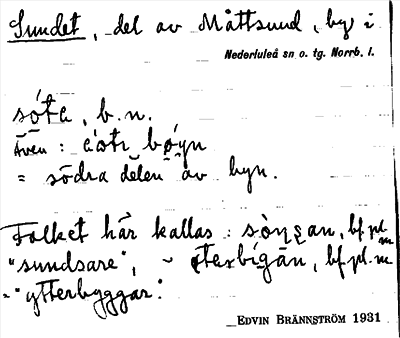 Sundet, del av Måttsund, by i
Nederluleå sn o. tg. Norrb. l.
b. n.
Även :
= södra delen av byn.
Folket här kallas : bf. pl. m
"sundsare", ~ bf. pl. m
= "ytterbyggar".
EDVIN BRÄNNSTRÖM 1931